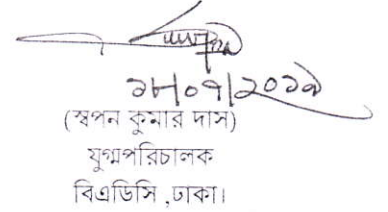 ১৮/০৭/২০১৯
(স্বপন কুমার দাস)
যুগ্মপরিচালক
বিএডিসি ,ঢাকা।